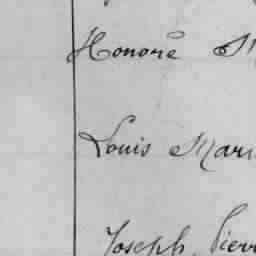 Honoré
Louis Mari
Joseph Pierr